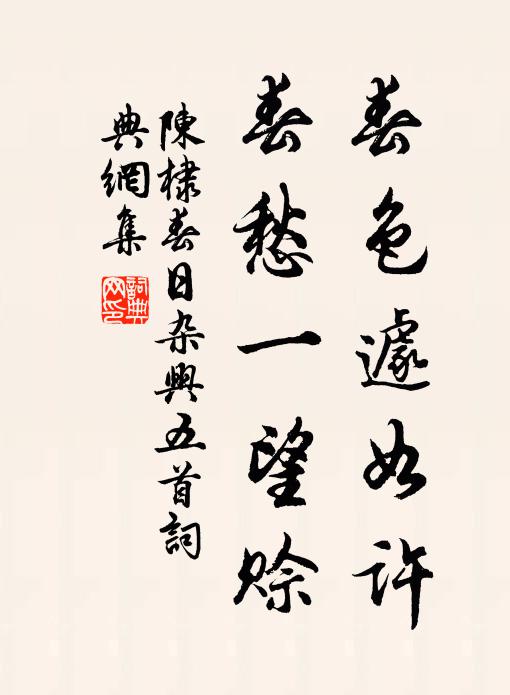 春色遽如許
春愁一望賒
陳棣春日杂興五首詞
典網集
詞典网印